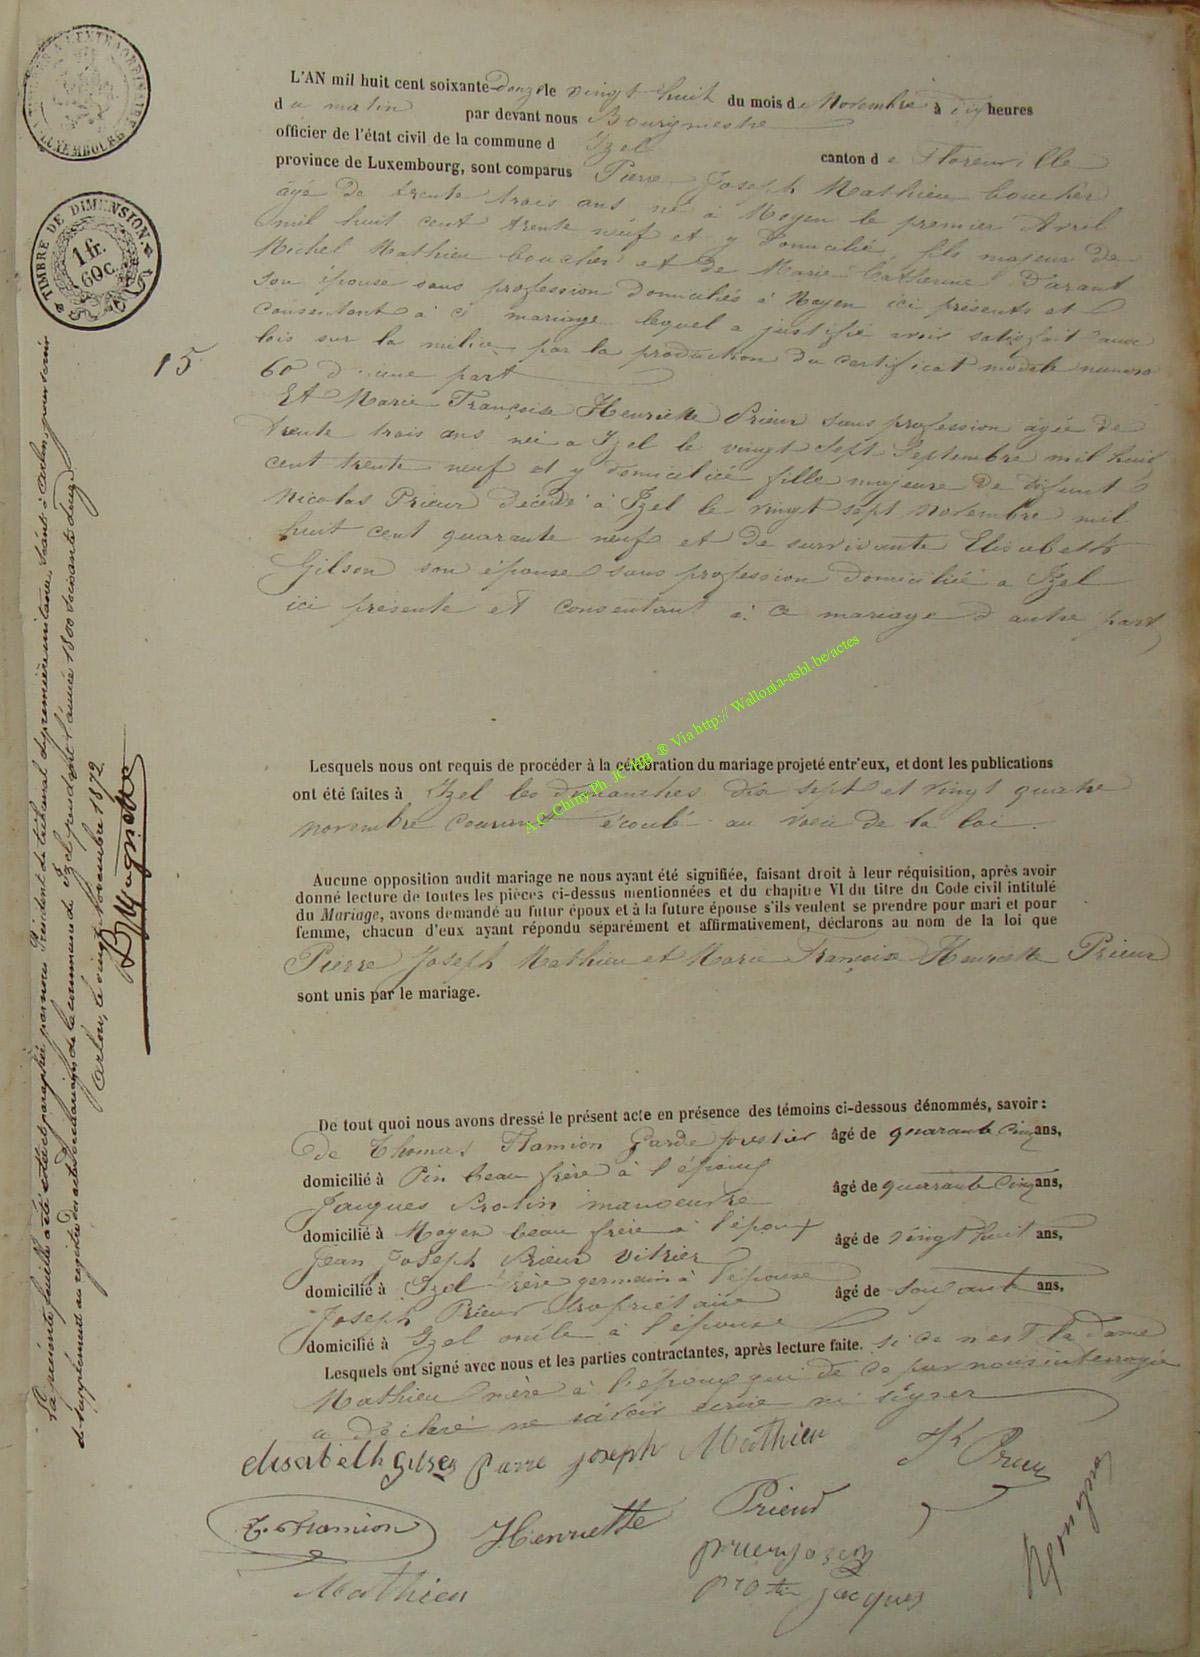 TIMBRE DE DIMENSION.
1 fr.
60c.
15
L'AN mil huit cent soixante-Douze le vingt huit du mois de Novembre à dix heures
du matin par devant nous Bourgmestre
officier de l'état civil de la commune d Izel canton de Florenville
province de Luxembourg, sont comparus Pierre Joseph Mathieu boucher
agé de trente trois ans né à Moyen le premier Avril
mil huit cent trente neuf et y Domicilié fils majeur de
Michel Mathieu boucher et de Marie Catherine
son épouse sans profession domiciliés à Moyen ici présents et
consentant à ce mariage lequel a justifié avoir satisfait aux
lois sur la milice par la production du certificat modèle numero
60 d'une part
Et Marie Françoise Henriette Prieur sans profession agée de
trente trois ans née a Izel le vingt sept Septembre mil huit
cent trente neuf et y domiciliée fille majeure de défunt
Nicolas Prieur décédé à Izel le vingt sept Novembre mil
huit cent quarante neuf et de survivante Elisabeth
Gilson son épouse sans profession domiciliée a Izel
ici présente et consentant à ce mariage d'autre part
A.C. Chiny Ph JC HB ® Via http:// Wallonia-asbl.be/actes
Lesquels nous ont requis de procéder à la célébration du mariage projeté entr'eux, et dont les publications
ont été faites à Izel les dimanches dix sept et vingt quatre
novembre courant écoulé au voeu de la loi.
Aucune opposition audit mariage ne nous ayant été signifiée, faisant droit à leur réquisition, après avoir
donné lecture de toutes les pièces ci-dessus mentionnées et du chapitre VI du titre du Code civil intitulé
du Mariage, avons demandé au futur époux et à la future épouse s'ils veulent se prendre pour mari et pour
femme, chacun d'eux ayant répondu séparément et affirmativement, déclarons au nom de la loi que
Pierre Joseph Mathieu et Marie Françoise Henriette Prieur
sont unis par le mariage.
De tout quoi nous avons dressé le présent acte en présence des témoins ci-dessous dénommés, savoir :
De Thomas Flamion Garde forestier âgé de quarante cinq ans,
domicilié à Pin beau frère à l'époux
Jacques manoeuvre âgé de quarante cinq ans,
domicilié à Moyen beau frère à l'époux
Jean Joseph Prieur vitrier âgé de vingt huit ans,
domicilié à Izel frère germain à l'épouse
Joseph Prieur propriétaire âgé de soixante ans,
domicilié à Izel oncle à l'épouse
Lesquels ont signé avec nous et les parties contractantes, après lecture faite. si ce n'est la Dame
Mathieu mère à l'époux qui de ce par nous interrogée
a déclaré ne savoir écrire ni signer
elisabeth Pierre joseph Mathieu
Prieur
T. Flamion Henriette Prieur
Mathieu
jacques
La présente feuille a été cotée et paraphée par nous Président du tribunal de première instance, séant à Arlon, pour servir
de supplément au registre des actes de mariage de la commune de Izel pendant l'année 1800 soixante douze
Arlon, le vingt novembre 1872.